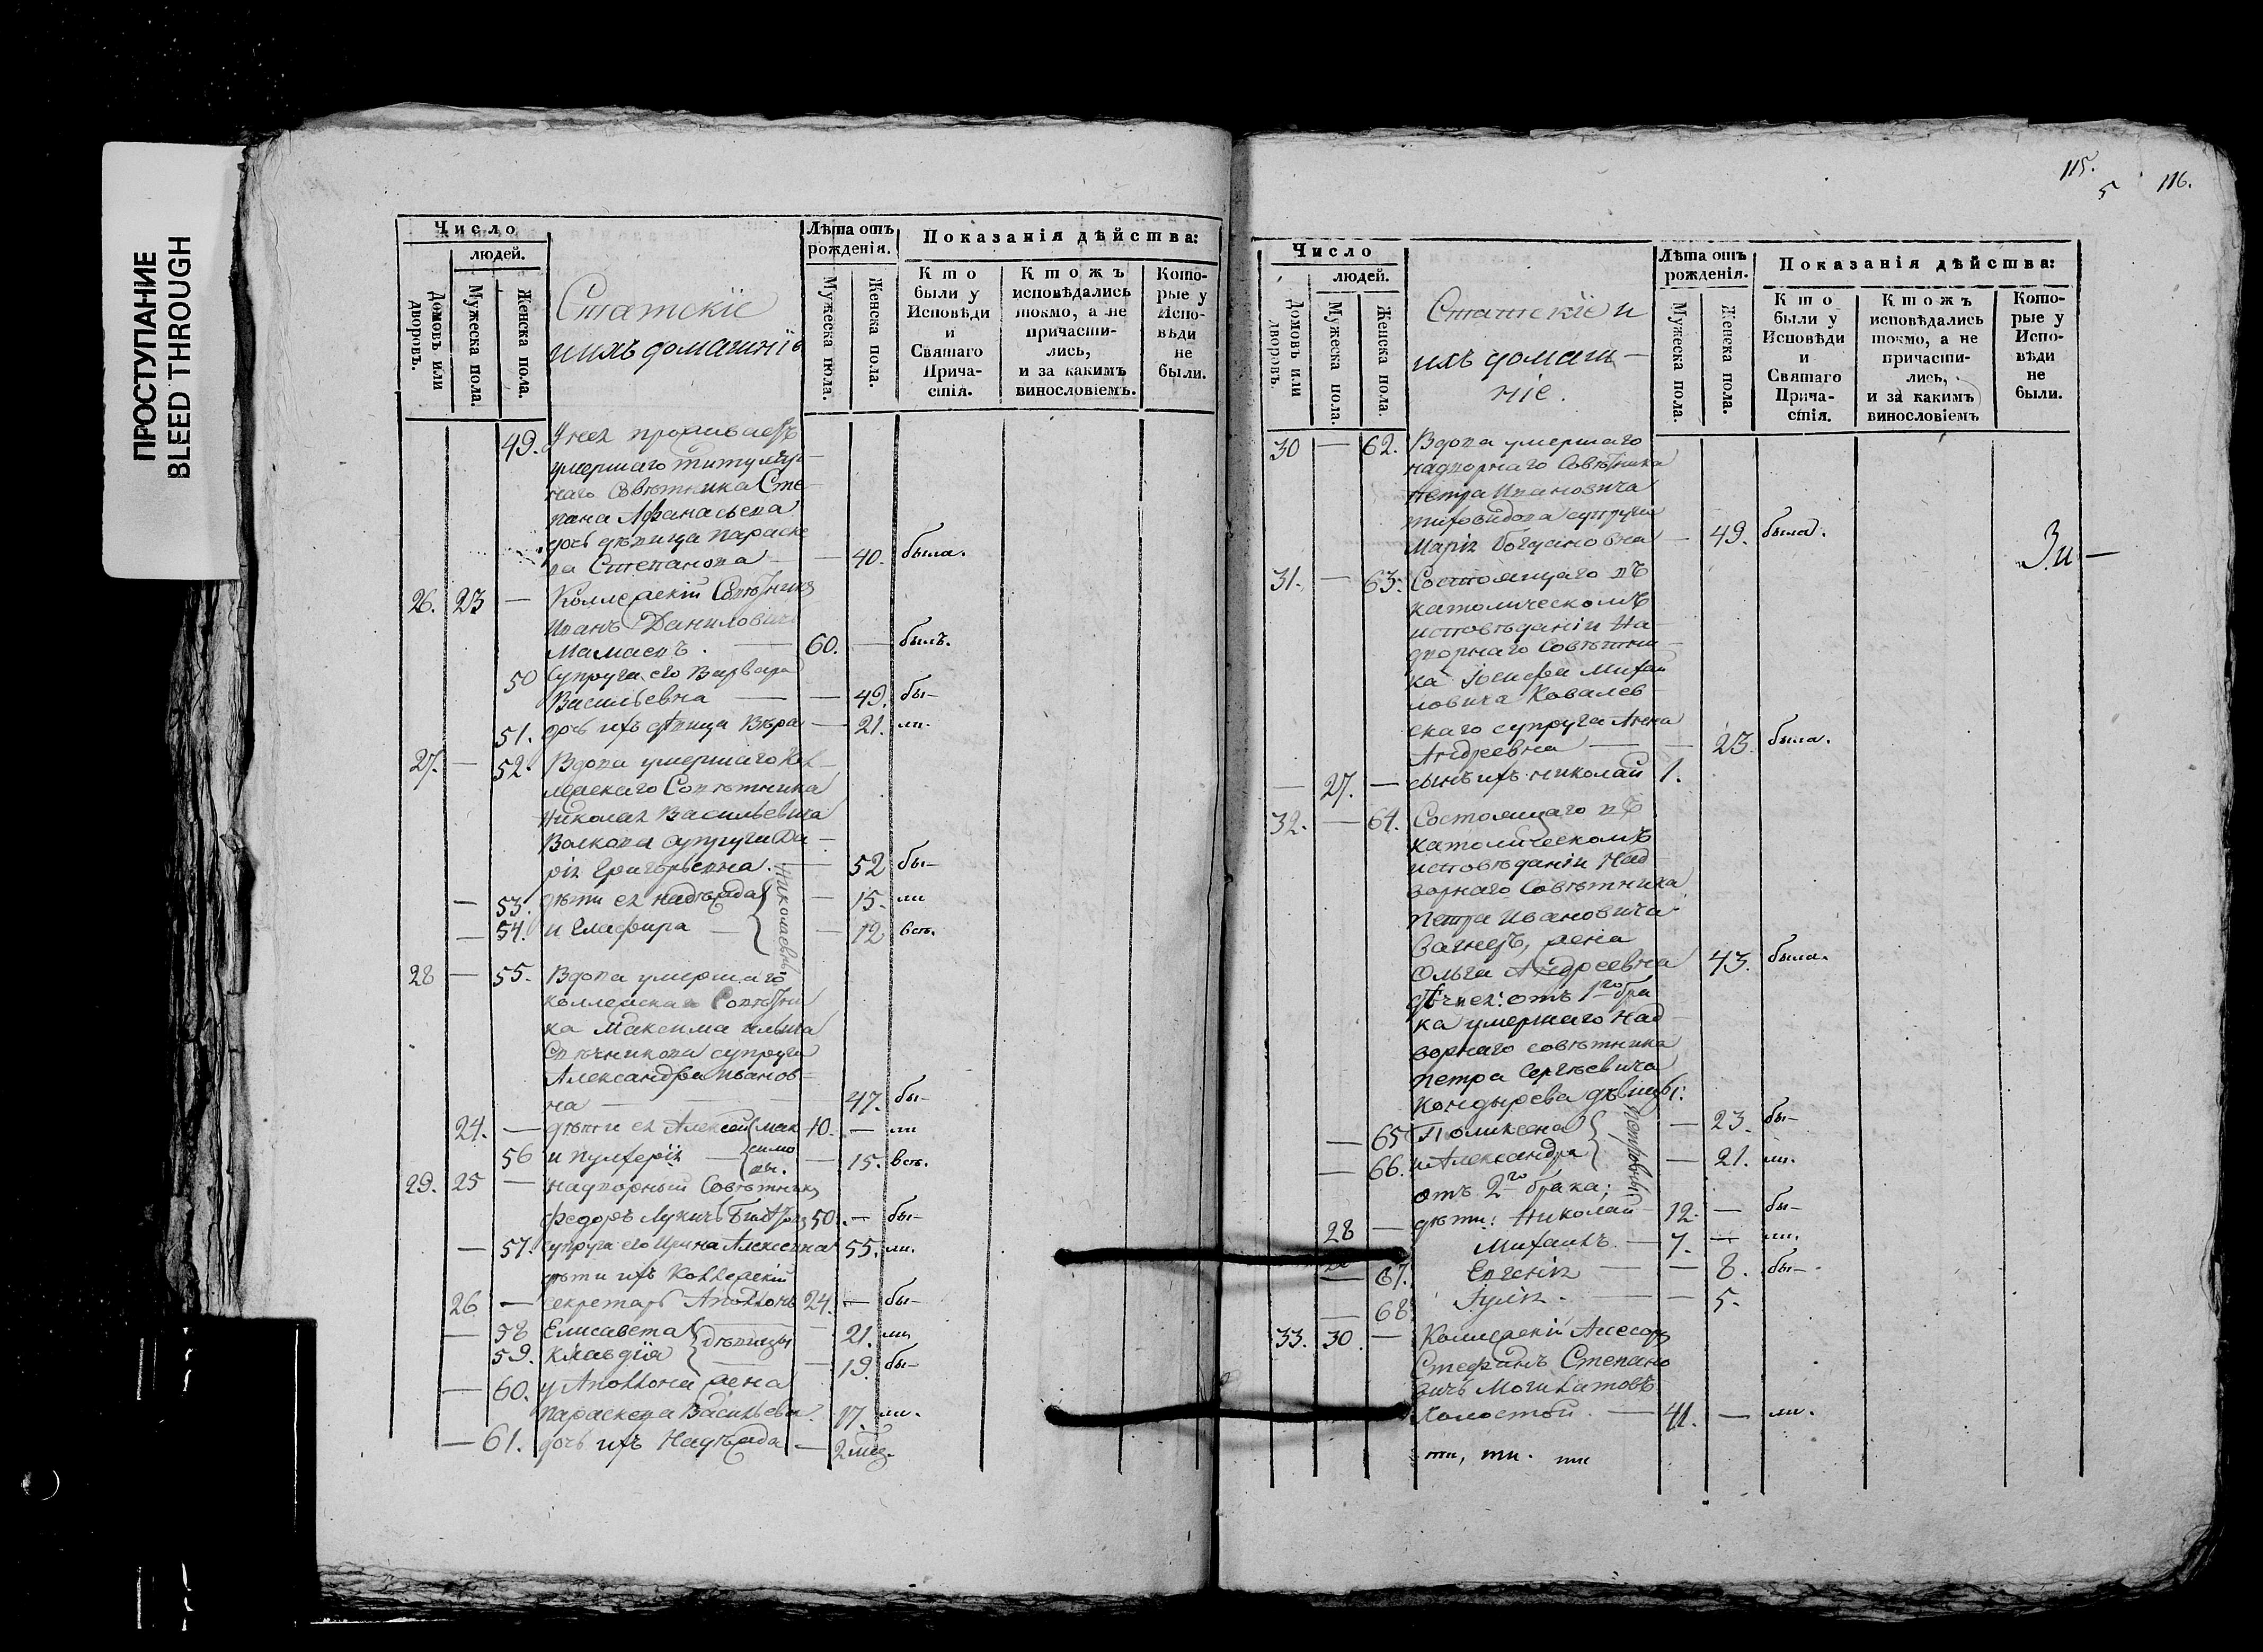 ПРОСТУПАНИЕ
BLEED THROUGH
Число
людей.
Домовъ или дворовъ.
Мужеска пола.
Женска пола.
Статскіе
и ихъ домашніе
Лѣта отъ рожденія.
Мужеска пола.
Женска пола.
Показанія дѣйства:
Кто были у Исповѣди и Святаго Прича-стія.
Ктожъ исповѣдались токмо, а не причасти-лись, и за какимъ винословіемъ.
Кото-рые у Испо-вѣди не были.
49. У нея проживаетъ
умершаго титуляр-
наго Совѣтника Сте-
пана Афанасьева
дочь дѣвица Параске
ва Степанова — 40. была.
26. 23 — Коллежскій Совѣтникъ
Иванъ Даниловичъ
Мамаевъ. — 60. — былъ.
50 Супруга его Варвара
Васильевна — — 49. бы-
51. дочь ихъ дѣвица Вѣра — 21. ли.
27. — 52. Вдова умершаго Кол-
лежскаго Совѣтника
Николая Васильевича
Волкова супруга Да-
рія Григорьевна. — 52 бы-
— 53. дѣти ея Надежда — 15. ли
— 54. и Глафира — — 12 всѣ.
Николаевны
28 — 55. Вдова умершаго
коллежскаго Совѣтни
ка Максима Ильича
Свѣчникова супруга
Александра Иванов-
на — 47. бы-
24. — дѣти ея Алексей 10. — ли
56 и Пулхерія — — 15. всѣ.
Макси мо вы.
29. 25 — Надворный Совѣтникъ
Федоръ Лукичъ 50. — бы-
— 57. супруга его Ирина Алексевна 55. ли.
дѣти ихъ Коллежскій
26 — секретарь Аполлонъ 24. — бы-
— 58 Елисавета — 21. ли
59. Клавдія — 19. бы-
дѣвицы
— 60. у Аполлона жена
Параскева Васильева. 17. ли.
— 61. дочь ихъ Надежда — 2 мѣс.
115.
5
116.
Число
людей.
Домовъ или дворовъ.
Мужеска пола.
Женска пола.
Статскіе и
ихъ домаш-
ніе.
Лѣта отъ рожденія.
Мужеска пола.
Женска пола.
Показанія дѣйства:
Кто были у Исповѣди и Святаго Прича-стія.
Ктожъ исповѣдались токмо, а не причасти-лись, и за какимъ винословіемъ
Кото-рые у Испо-вѣди не были.
30 — 62. Вдова умершаго
надворнаго Совѣтника
Петра Ивановича
Тиховидова супруга
Марія Богдановна — 49. была.
31. — 63. Состоящаго въ
католическомъ
исповѣданіи На-
дворнаго Совѣтни-
ка Іосифа Михай
ловича Ковалев-
скаго супруга Анна
Андреевна — — 23. была.
— 27. — сынъ ихъ Николай 1.
32. — 64. Состоящаго въ
католическомъ
исповѣданіи Над
ворнаго Совѣтника
Петра Ивановича
Вагнеръ, жена
Ольга Андреевна 43. была.
у нея: отъ 1го бра
ка умершаго Над
ворнаго совѣтника
Петра Сергѣевича
Кондырева дѣвицы:
— 65 Поликсена — 23. бы-
— 66. и Александра — 21. ли.
Петровны
отъ 2го брака;
28 — дѣти: Николай 12. — бы-
Михаилъ — 7. — ли.
— 67. Евгенія — — 8. бы-
— 68. Іулія. — — 5.
33. 30. — Коллежскій Асесоръ
Стефанъ Степано
вичъ Могилатовъ
Холостой. — 41. — ли.